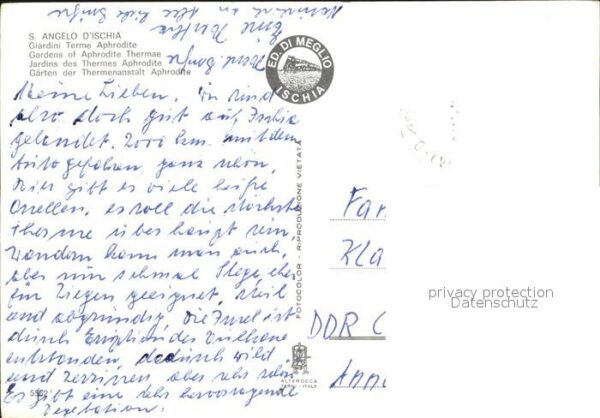 S. ANGELO D'ISCHIA
Giardini Terme Aphrodite
Gardens of Aphrodite Thermae
Jardins des Thermes Aphrodite
Gärten der Thermenanstalt Aphrodite
ED. DI MEGLIO
ISCHIA
Meine Lieben, wir sind
also doch gut auf Ischia
gelandet. 2000 km mit dem
Auto gefahren, ganz schön.
Hier gibt es viele heiße
Quellen, es soll die stärkste
Therme überhaupt sein,
Wandern kann man auch,
aber nur schmale Stege, eher
für Ziegen geeignet, steil
und abgründig. Die Insel ist
durch Eruption des Vulkans
entstanden, dadurch wild
und zerrissen aber sehr schön
Es gibt eine sehr hervorragende
Vegetation.
FOTOCOLOR - RIPRODUZIONE VIETATA
Fam
Kla
DDR
Anna
privacy protection
Datenschutz
ALTEROCCA
TERNI - ITALY